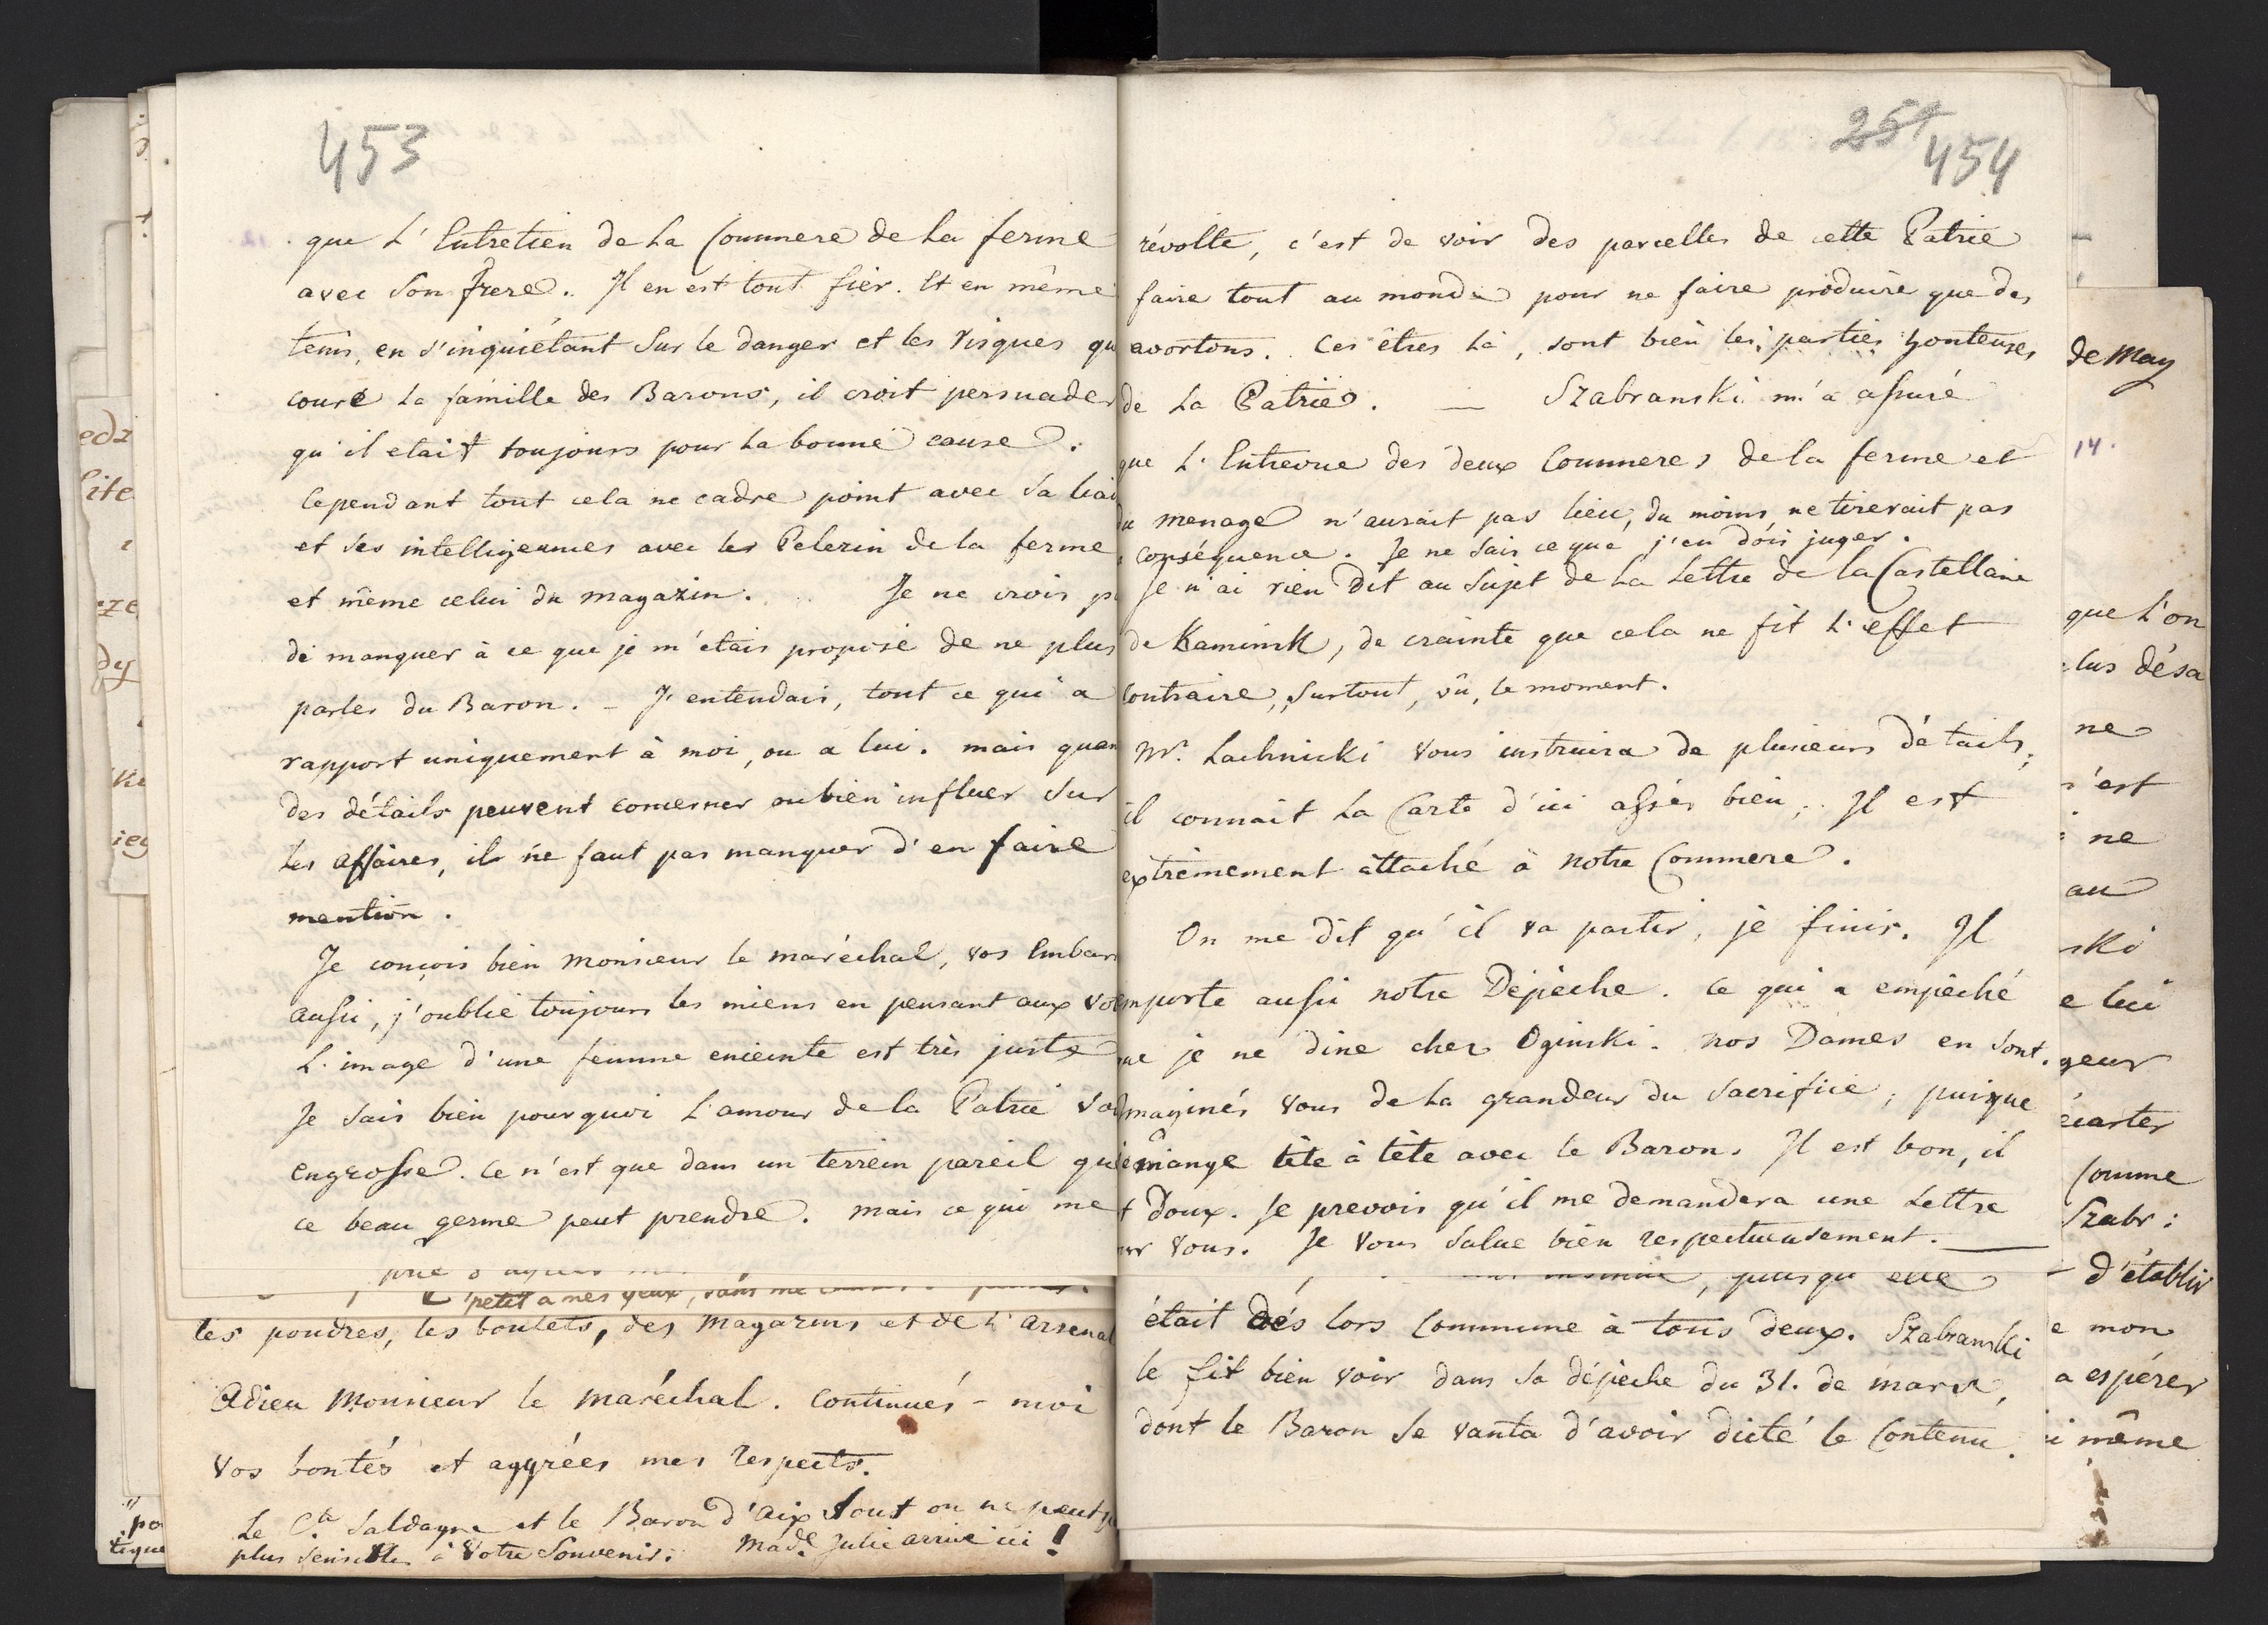 453
que L'Entretien de La Commere de La ferme
avec Son frere. Il en est tout fier. Et en même
tems, en s'inquiétant Sur le danger et les risques qu
coure La famille des Barons, il croit persuader
qu'il etait toujours pour La bonne cause.
Cependant tout cela ne cadre point avec Sa liai
et Ses intelligeances avec les Pelerin de la ferme
et même celui du magazin. Je ne crois p
de manquer à ce que je m'étais proposé de ne plus
parler du Baron. – J'entendais, tout ce qui a
rapport uniquement à moi, ou a lui. mais quan
des détails peuvent concerner ou bien influer Sur
les affaires, il ne faut pas manquer d'en faire
mention.
Je conçois bien monsieur le maréchal, vos Embar
aussi, j'oublie toujours les miens en pensant aux vo
L'image d'une femme enceinte est très juste
Je Sais bien pourquoi L'amour de la Patrie vo
engrosse. Ce n'est que dans un terrein pareil qu
ce beau germe peut prendre. mais ce qui me
petit a mes yeux, sans me
les poudres, les boulets, des Magazins et de L'arsenal
Adieu Monsieur le maréchal. Continués-moi
vos bontés et aggrées mes respects.
Le Cte Saldagne et le Baron d'Aix Sont on ne peut p
plus Sensibles à Votre Souvenir. Made Julie arrive ici !
254
454
révolte, c'est de voir des parcelles de cette Patrie
faire tout au monde pour ne faire produire que des
avortons. Ces êtres là, sont bien les parties honteuses
de La Patrie. — Szabranski m'a assuré
que L'Entrevue des deux Commeres de la ferme et
du menage n'aurait pas lieu, du moins ne tirerait pas
conséquence. Je ne Sais ce que j'en dois juger.
Je n'ai rien Dit au Sujet de La Lettre de la Castellane
de Kaminsk, de crainte que cela ne fit L'effet
contraire, Surtout, vû, le moment.
Mr. Lachnicki Vous instruira de plusieurs détails;
il connait La Carte d'ici assés bien; Il est
extrèmement attaché à notre Commere.
On me dit qu'il va partir, je finis. Il
mporte aussi notre Dépèche. Ce qui a empêché
que je ne dine chez Oginski. nos Dames en Sont.
maginés vous de La grandeur du Sacrifice; puisque
je mange tête à tête avec le Baron. Il est bon, il
t doux. Je prevois qu'il me demandera une Lettre
ur vous. Je Vous Salue bien respectueusement. —
, puisqu'elle
était dès lors Commune à tous deux. Szabranski
le fit bien voir dans Sa dépèche du 31. de mars,
dont le Baron Se vanta d'avoir dicté le Contenu.
de May
14.
que L'on
lus désa
ne
s'est
ne
au
ski
e lui
geur
écarter
Comme
Szabr:
d'établir
e mon
a espérer
i même